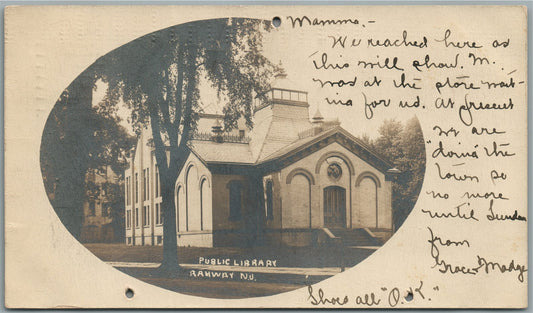 Mamma.-
We reached here as
this will show. M.
was at the store wait-
ing for us. At present
we are
"doing the
town so
no more
until Sunday
from
Grace Madge
Shoes all "O.K."
PUBLIC LIBRARY
RAHWAY N.J.